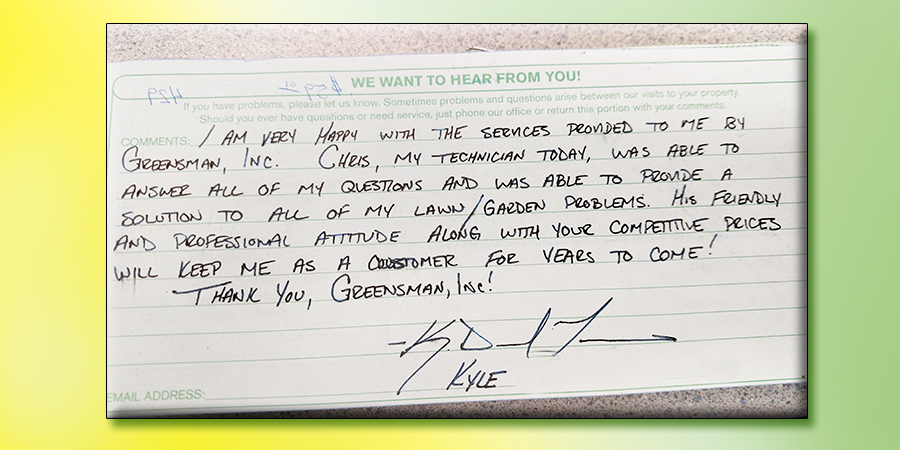 WE WANT TO HEAR FROM YOU!
If you have problems, please let us know. Sometimes problems and questions arise between our visits to your property.
Should you ever have questions or need service, just phone our office or return this portion with your comments.
COMMENTS: I AM VERY HAPPY WITH THE SERVICES PROVIDED TO ME BY
GREENSMAN, INC. CHRIS, MY TECHNICIAN TODAY, WAS ABLE TO
ANSWER ALL OF MY QUESTIONS AND WAS ABLE TO PROVIDE A
SOLUTION TO ALL OF MY LAWN/GARDEN PROBLEMS. HIS FRIENDLY
AND PROFESSIONAL ATTITUDE ALONG WITH YOUR COMPETITIVE PRICES
WILL KEEP ME AS A CUSTOMER FOR YEARS TO COME!
THANK YOU, GREENSMAN, INC!
KYLE
EMAIL ADDRESS: